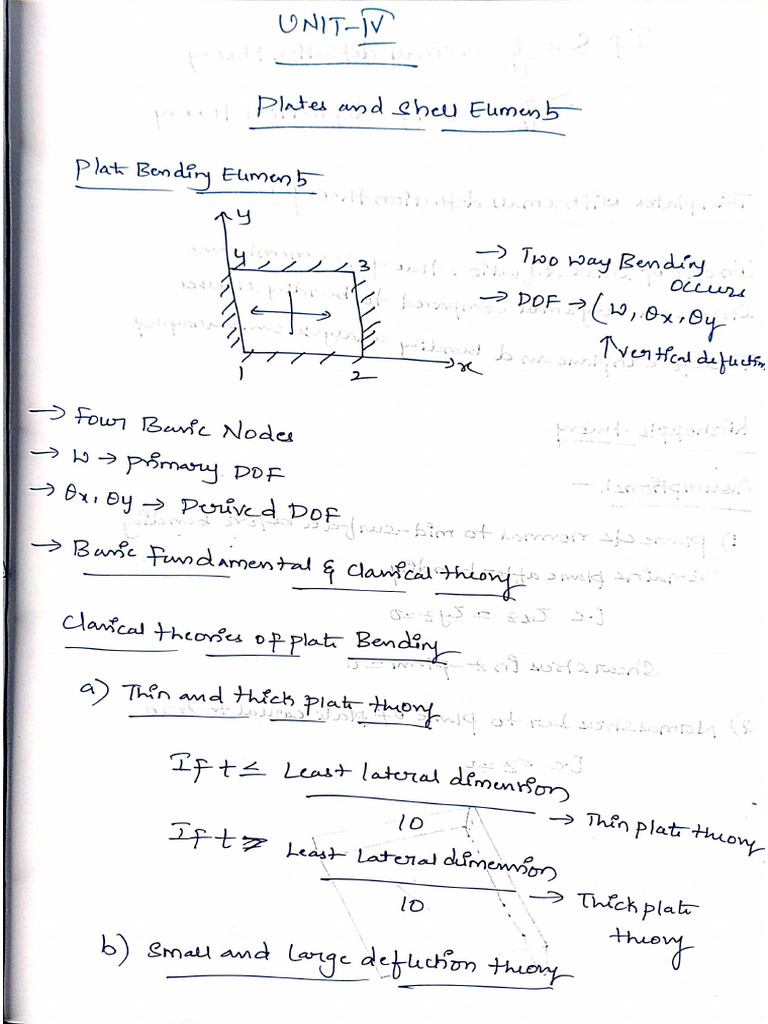 UNIT-IV
Plates and Shell Elements
Plate Bending Elements
y
4 3
1 2 x
→ Two way Bending occurs
→ DOF → (w, θx, θy
↑ vertical deflection
→ Four Basic Nodes
→ w → primary DOF
→ θx, θy → Derived DOF
→ Basic Fundamental & Classical theory
Classical theories of plate Bending
a) Thin and thick plate theory
If t ≤ Least lateral dimension
10 → Thin plate theory
If t ≥ Least Lateral dimension
10 → Thick plate
theory
b) Small and large deflection theory